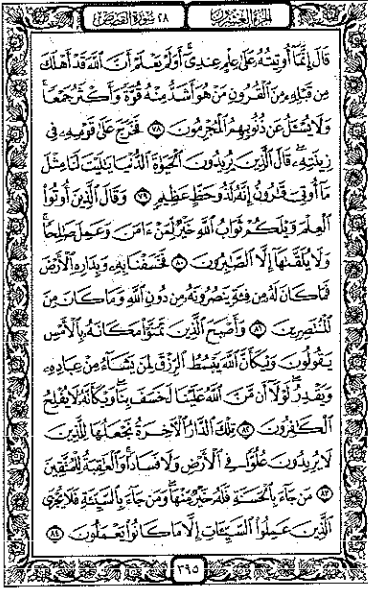 الجزء العشرون ٢٨ سورة القصص
قَالَ إِنَّمَآ أُوتِيتُهُۥ عَلَىٰ عِلْمٍ عِندِىٓ ۚ أَوَلَمْ يَعْلَمْ أَنَّ ٱللَّهَ قَدْ أَهْلَكَ
مِن قَبْلِهِۦ مِنَ ٱلْقُرُونِ مَنْ هُوَ أَشَدُّ مِنْهُ قُوَّةً وَأَكْثَرُ جَمْعًا ۚ
وَلَا يُسْـَٔلُ عَن ذُنُوبِهِمُ ٱلْمُجْرِمُونَ ٧٨ فَخَرَجَ عَلَىٰ قَوْمِهِۦ فِى
زِينَتِهِۦ ۖ قَالَ ٱلَّذِينَ يُرِيدُونَ ٱلْحَيَوٰةَ ٱلدُّنْيَا يَـٰلَيْتَ لَنَا مِثْلَ
مَآ أُوتِىَ قَـٰرُونُ إِنَّهُۥ لَذُو حَظٍّ عَظِيمٍ ٧٩ وَقَالَ ٱلَّذِينَ أُوتُوا۟
ٱلْعِلْمَ وَيْلَكُمْ ثَوَابُ ٱللَّهِ خَيْرٌ لِّمَنْ ءَامَنَ وَعَمِلَ صَـٰلِحًا ۚ
وَلَا يُلَقَّىٰهَآ إِلَّا ٱلصَّـٰبِرُونَ ٨٠ فَخَسَفْنَا بِهِۦ وَبِدَارِهِ ٱلْأَرْضَ
فَمَا كَانَ لَهُۥ مِن فِئَةٍ يَنصُرُونَهُۥ مِن دُونِ ٱللَّهِ وَمَا كَانَ مِنَ
ٱلْمُنتَصِرِينَ ٨١ وَأَصْبَحَ ٱلَّذِينَ تَمَنَّوْا۟ مَكَانَهُۥ بِٱلْأَمْسِ
يَقُولُونَ وَيْكَأَنَّ ٱللَّهَ يَبْسُطُ ٱلرِّزْقَ لِمَن يَشَآءُ مِنْ عِبَادِهِۦ
وَيَقْدِرُ ۖ لَوْلَآ أَن مَّنَّ ٱللَّهُ عَلَيْنَا لَخَسَفَ بِنَا ۖ وَيْكَأَنَّهُۥ لَا يُفْلِحُ
ٱلْكَـٰفِرُونَ ٨٢ تِلْكَ ٱلدَّارُ ٱلْـَٔاخِرَةُ نَجْعَلُهَا لِلَّذِينَ
لَا يُرِيدُونَ عُلُوًّا فِى ٱلْأَرْضِ وَلَا فَسَادًا ۚ وَٱلْعَـٰقِبَةُ لِلْمُتَّقِينَ
٨٣ مَن جَآءَ بِٱلْحَسَنَةِ فَلَهُۥ خَيْرٌ مِّنْهَا ۖ وَمَن جَآءَ بِٱلسَّيِّئَةِ فَلَا يُجْزَى
ٱلَّذِينَ عَمِلُوا۟ ٱلسَّيِّـَٔاتِ إِلَّا مَا كَانُوا۟ يَعْمَلُونَ ٨٤
٣٩٥